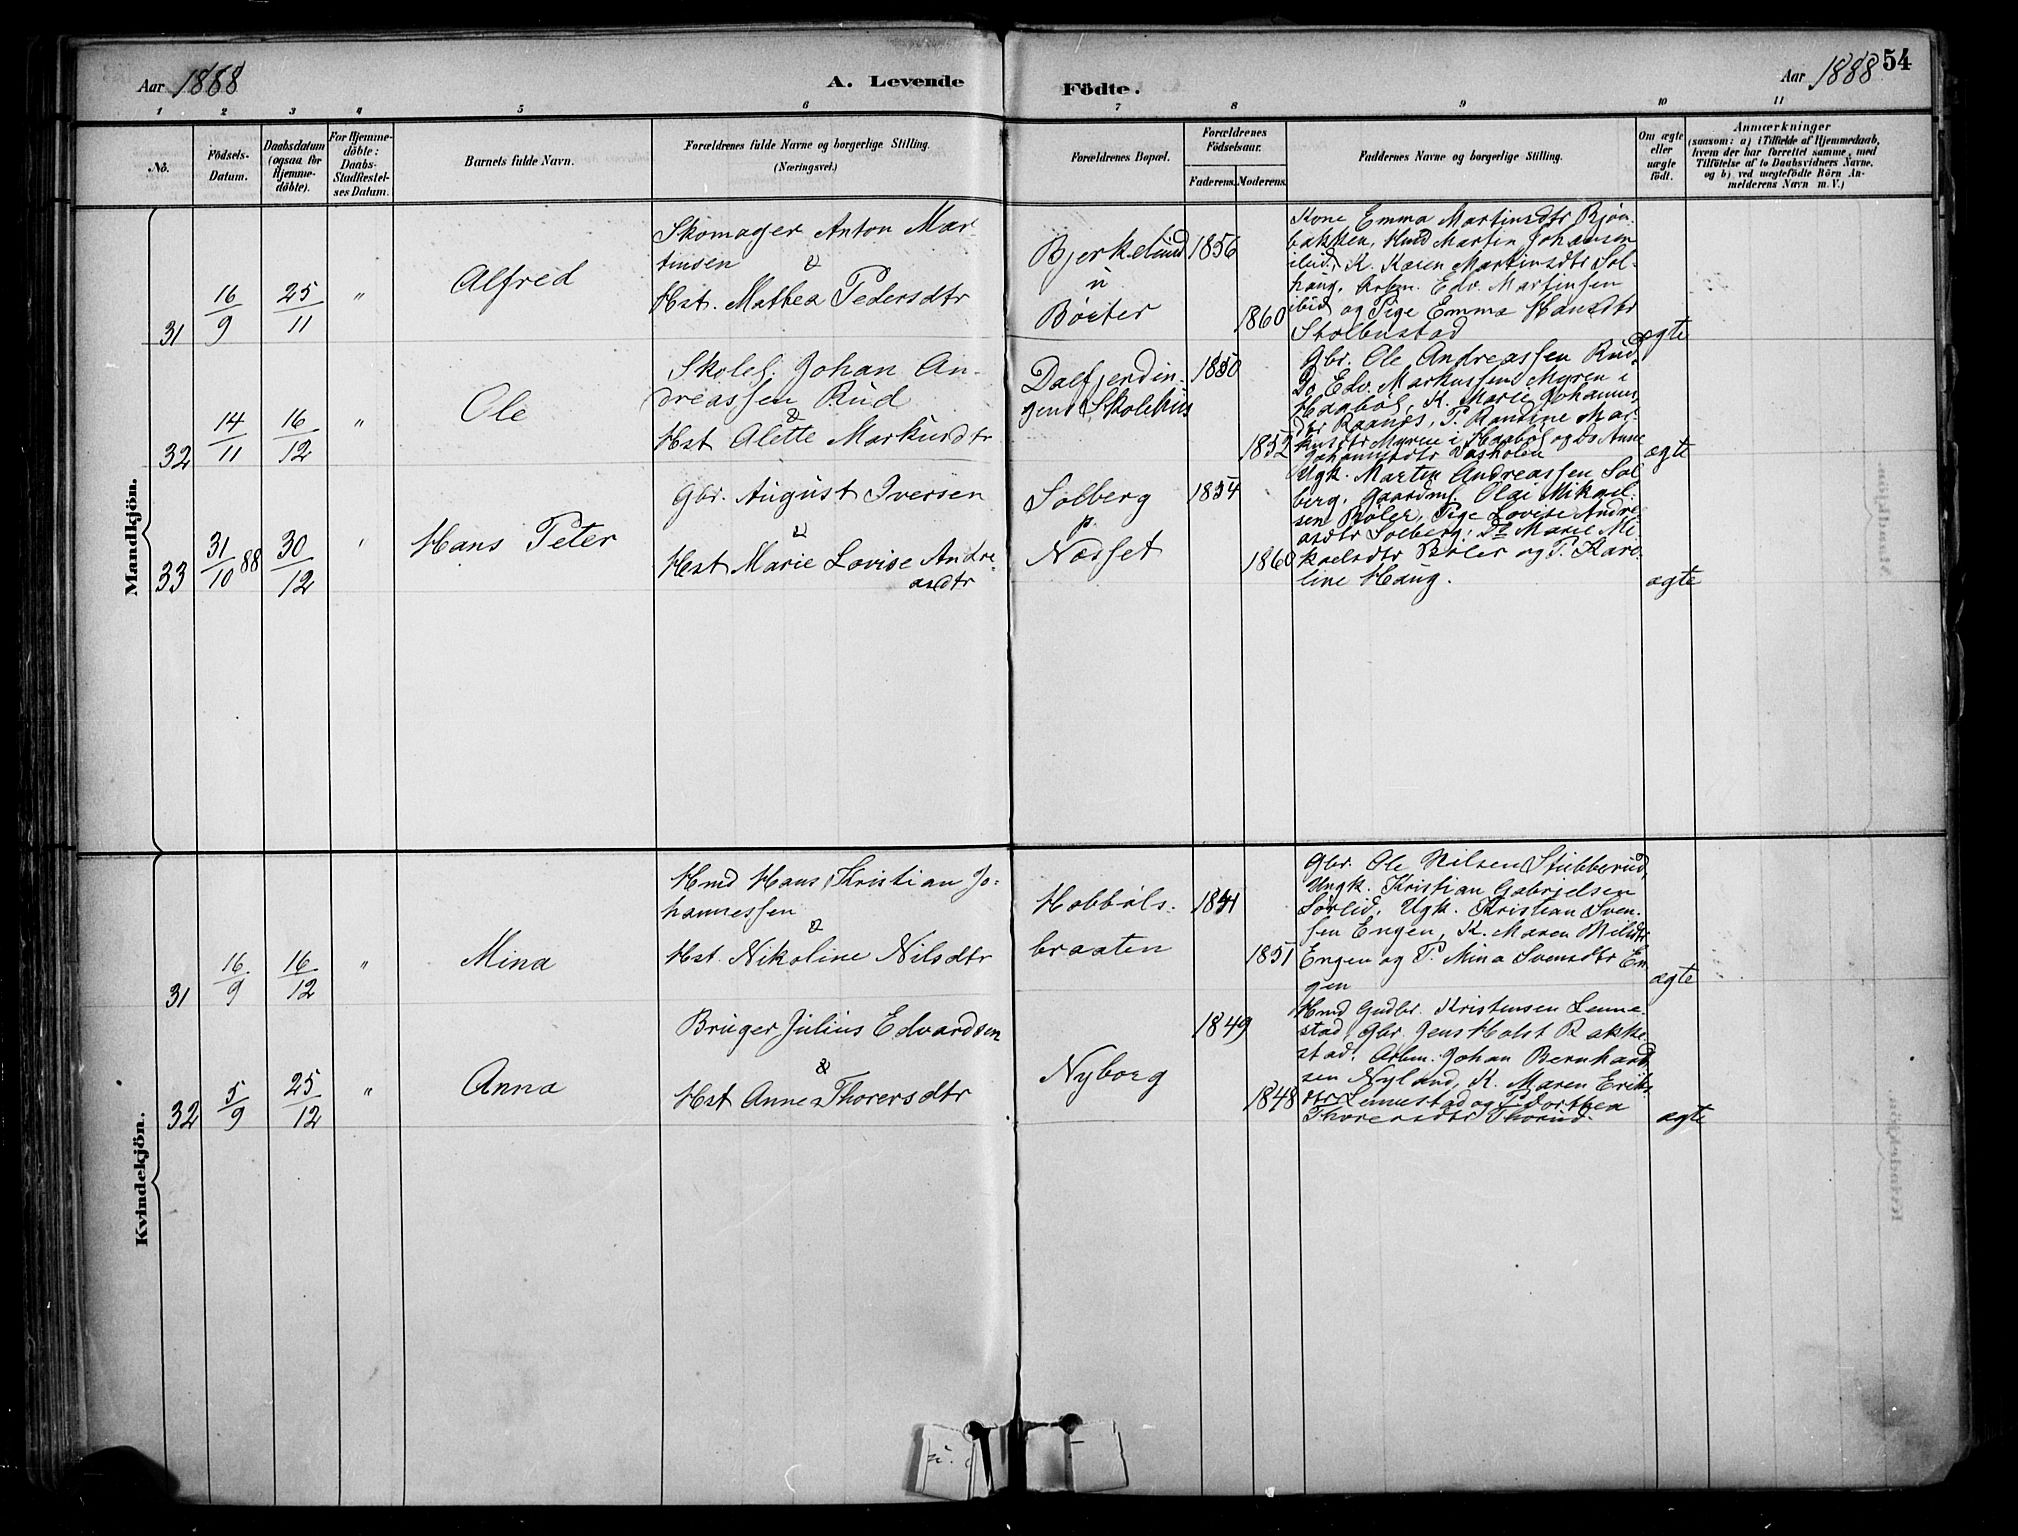 Aar 1888
A. Levende
Födte.
Aar 1888
54
1 2 3 4 5 6 7 8 9 10 11
No.
Födsels-
Datum.
Daabsdatum
(ogsaa for
Hjemme-
döbte).
For Hjemme-
döbte:
Daabs-
Stadfæstel-
ses Datum.
Barnets fulde Navn.
Forældrenes fulde Navne og borgerlige Stilling.
(Næringsvei.)
Forældrenes Bopæl.
Forældrenes
Födselsaar.
Faderens.
Moderens.
Faddernes Navne og borgerlige Stilling.
Om ægte
eller
uægte
födt.
Anmærkninger
(saasom: a) i Tilfælde af Hjemmedaab,
hvem der har forrettet samme, med
Tilföielse af to Daabsvidners Navne,
og b) ved uægtefödte Börn An-
melderens Navn m. V.)
Mandkjön.
31
16/9
25/11
"
Alfred
Skomager Anton Mar-
tinsen
&
Hst. Mathea Pedersdtr
Bjerkelund
u
Böiter
1856
1860
Kone Emma Martinsdtr Bjön-
bakken, Hmd Martin Johansen
ibid, K. Karen Martinsdtr Sol-
haug, Arbm. Edv. Martinsen
ibid og Pige Emma Hansdtr
Stolbustad
ægte
32
14/11
16/12
"
Ole
Skolel. Johan An-
dreassen Rud
&
Hst Alette Markusdtr
Dalfjerdin-
gens Skolehus
1850
1852
Gbr. Ole Andreassen Rud,
Do Edv. Markussen Myren i
Haaböl, K. Marie Johannes
dtr Raanes, P. Randine Mar-
kusdtr Myren i Haaböl og Do Anne
Johannesdtr
ægte
33
31/10 88
30/12
"
Hans Peter
Gbr. August Iversen
&
Hst Marie Lovise Andre-
asdtr
Solberg
p.
Næsset
1854
1860
Ugk. Martin Andreassen Sol
berg, Gaardm. Olai Mikael-
sen Böler, Pige Lovise Andre-
asdtr Solberg, Do Marie Mi-
kaelsdtr Böler og P. Karo-
line Haug.
ægte
Kvindekjön.
31
16/9
16/12
"
Mina
Hmd Hans Kristian Jo-
hannessen
&
Hst. Nikoline Nilsdtr
Hobböls-
braaten
1841
1851
Gbr. Ole Nilsen Stubberud,
Ungk. Kristian Gabrielsen
Sörlid, Ugk. Kristian Sven-
sen Engen, K. Maren Nilsdtr
Engen og P. Mina Svensdtr En
gen
ægte
32
5/9
25/12
"
Anna
Bruger Julius Edvardsen
&
Hst Anne Thorersdtr
Nyborg
1849
1848
Hmd Gudbr. Kristensen Lenne-
stad, Gbr. Jens Holst Rakke-
stad, Arbm. Johan Bernhard
sen Nyland, K. Maren Eriks
dtr Lennestad og P. Dorthea
Thorersdtr Thorud.
ægte